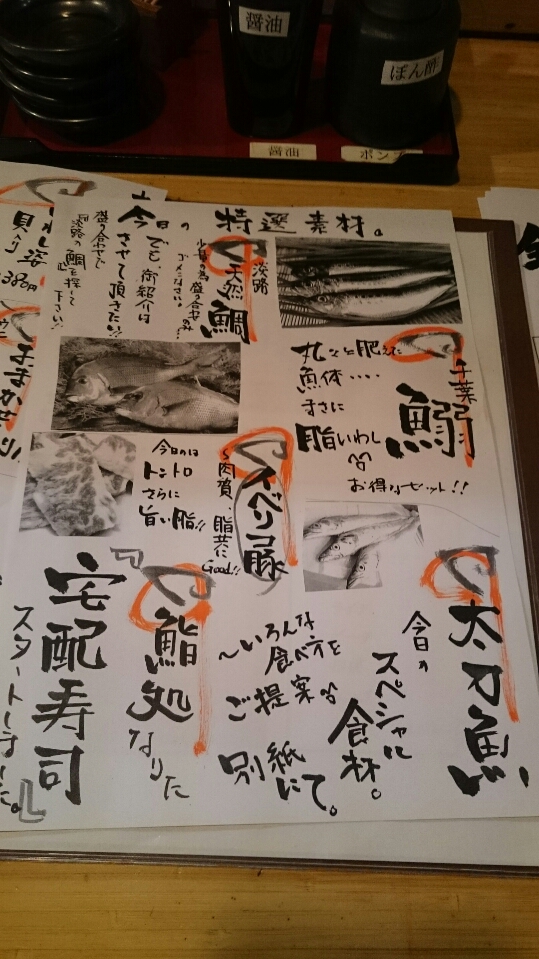 醤油
ぽん酢
醤油
ポン
今日の 特選素材。
千葉
鰯
丸々と肥えた
魚体・・・・
まさに
脂いわし
お得なセット!!
淡路
天然鯛
でも、御紹介は
させて頂きたい!!
盛り合わせで
淡路の鯛を探して
下さい!!
イベリコ豚
〜肉質、脂共に
Good!!
今日のは
トントロ
さらに
旨い脂!!
太刀魚
今日の
スペシャル
食材。
〜いろんな
食べ方を
ご提案
別紙
にて。
鮨処
なりた
『宅配寿司』
スタートしました。
貝